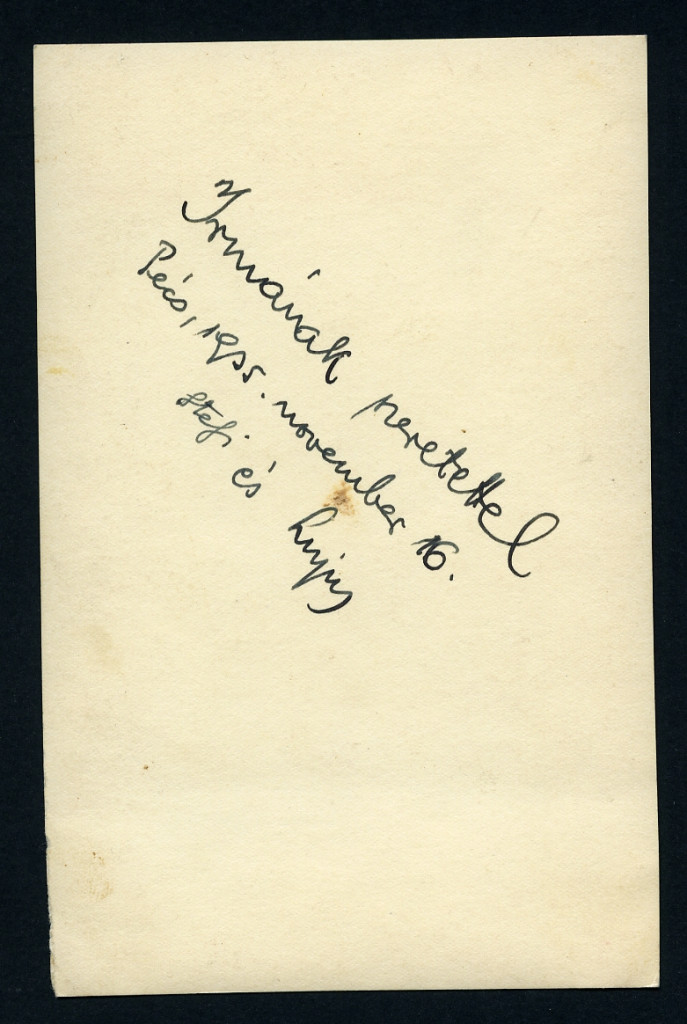 Irmának szeretettel
Pécs, 1935. november 16.
Stefi és